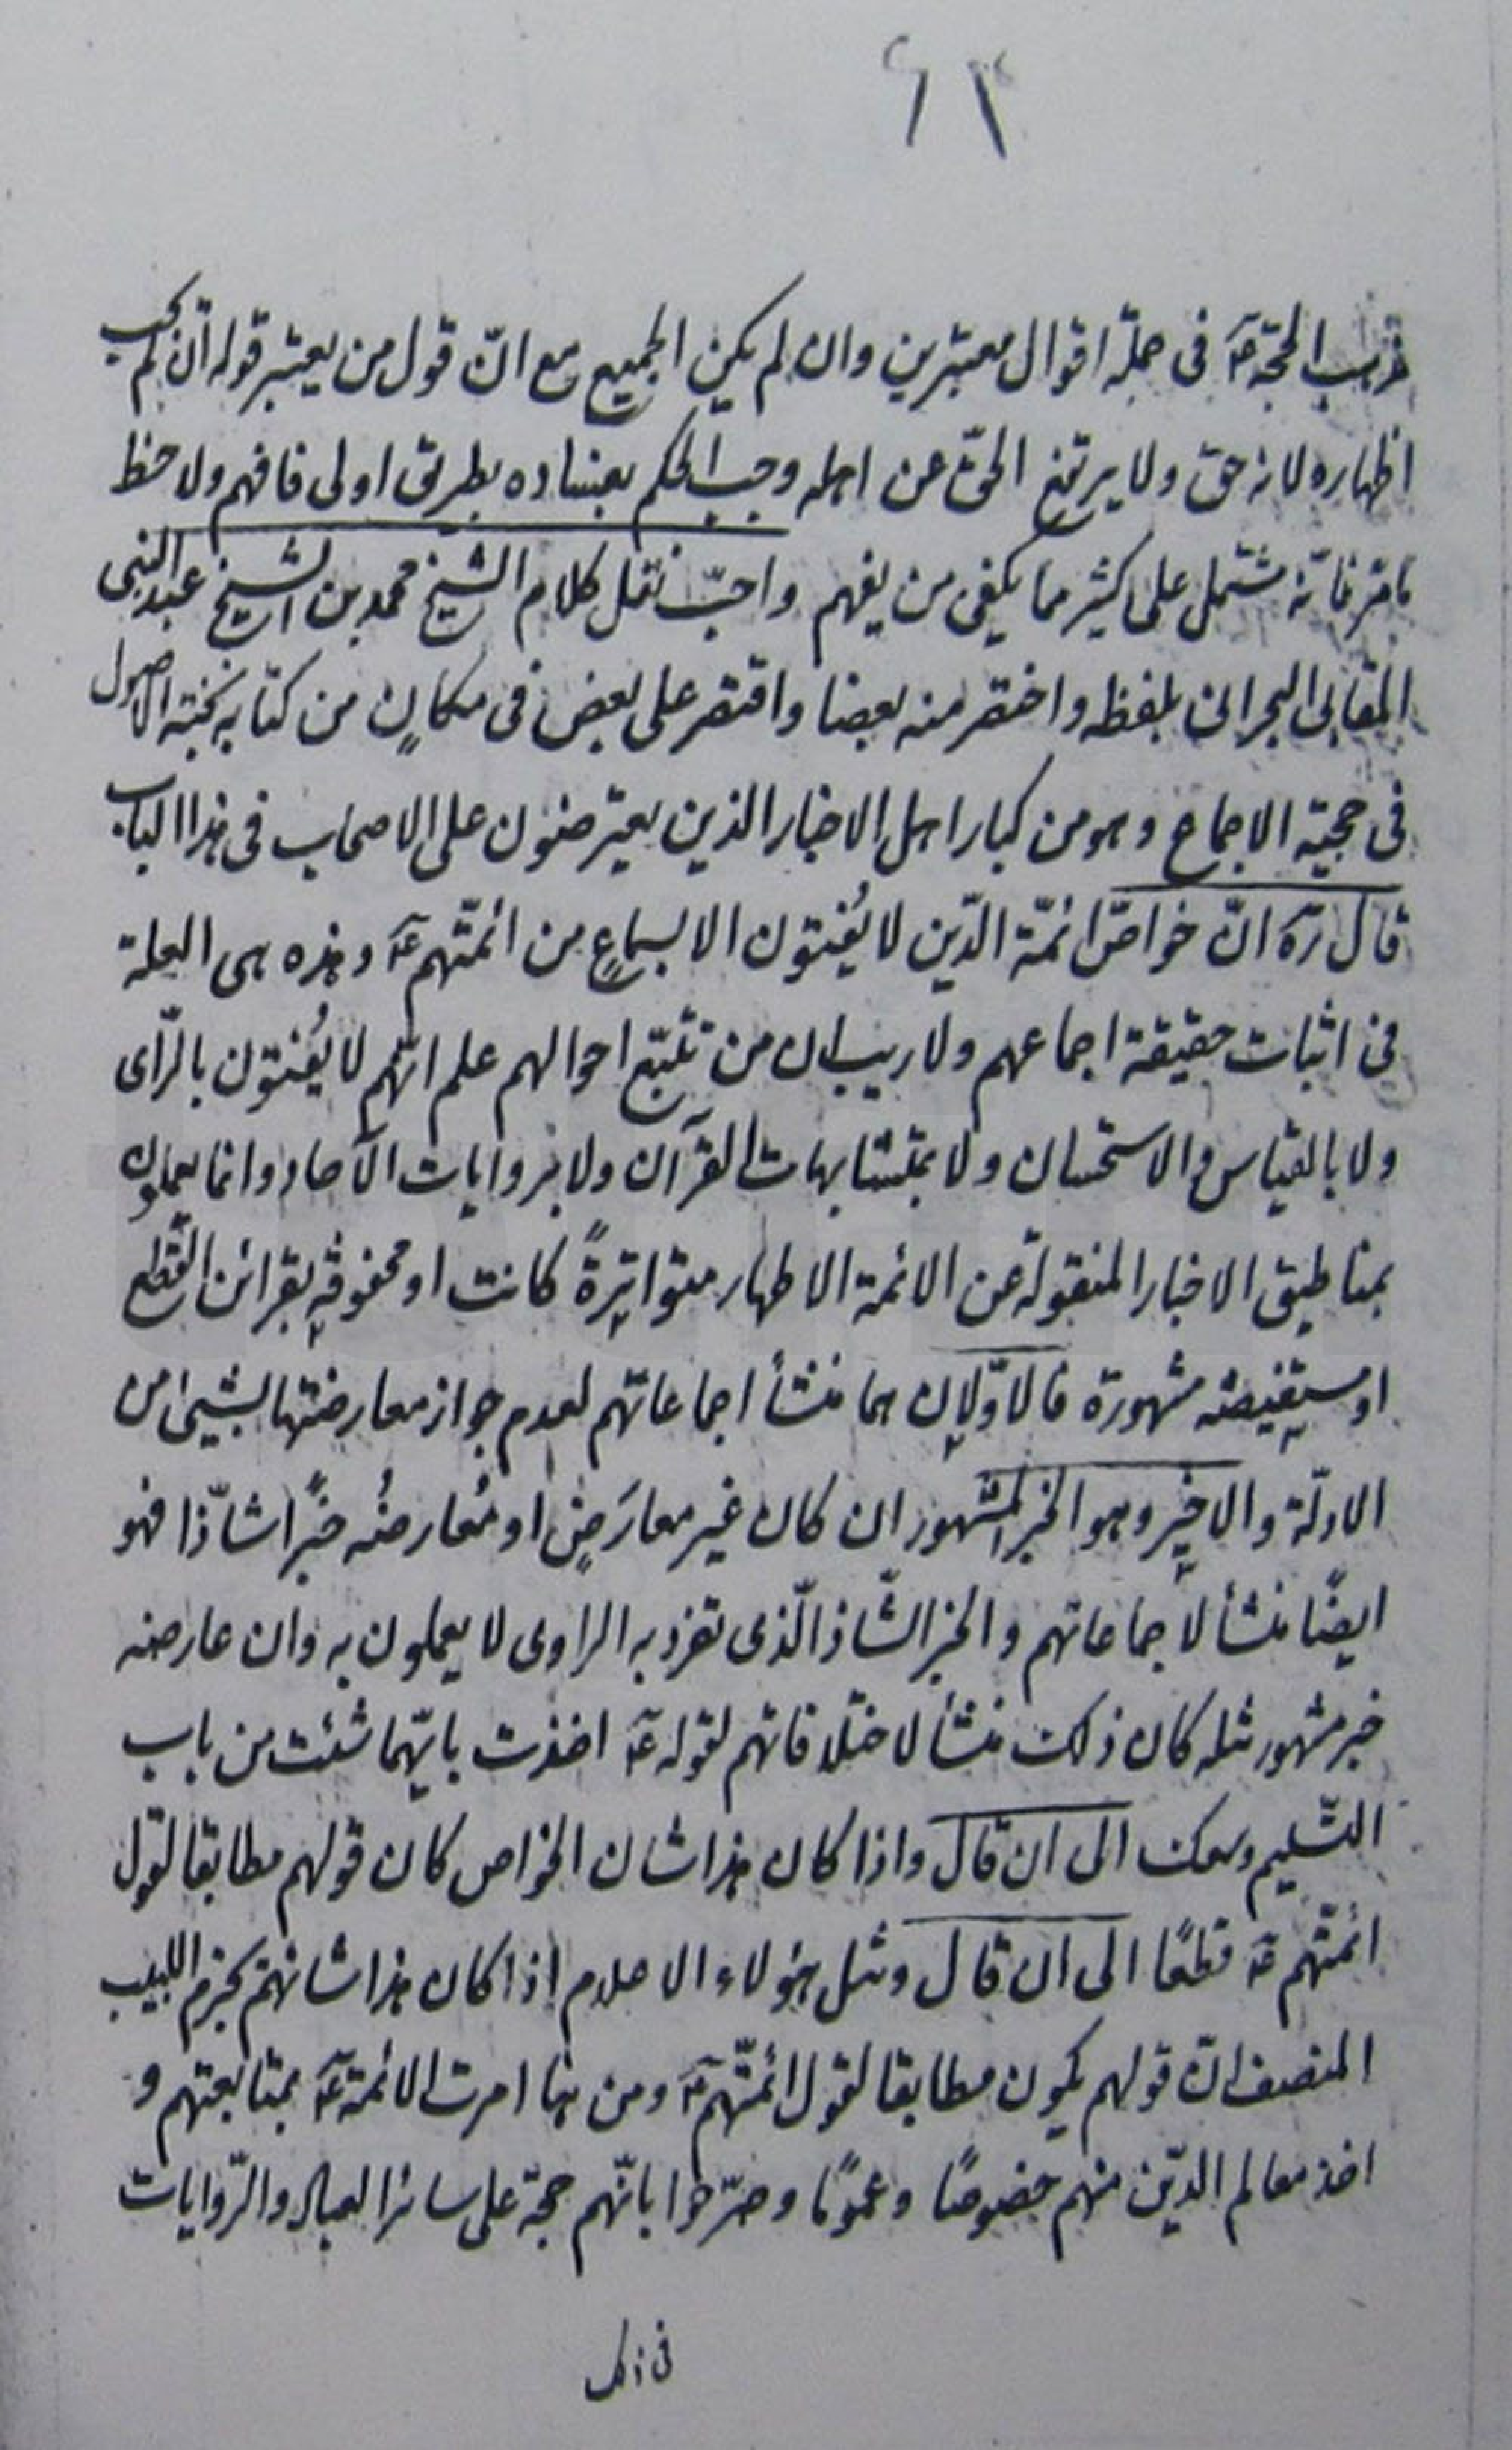 ٦٢
مذهب الحجة عۤ فى جملة اقوال معتبرين وان لم يكن الجميع مع انّ قول من يعتبر قوله ان لم يجب
اظهاره لانه حق ولا يرتفع الحق عن اهله وجب الحكم بفساده بطريق اولى فافهم ولاحظ
مامرّ فانّه مشتمل على كثير مما يكفى من يفهم واحبّ نقل كلام الشيخ محمد بن الشيخ عبد النبى
المقابى البحرانى بلفظه واختصر منه بعضا واقتصر على بعض فى مكانٍ من كتابه نخبة الاصول
فى حجية الاجماع وهو من كبار اهل الاخبار الذين يعترضون على الاصحاب فى هذا الباب
قال رَه انّ خواصّ ائمّة الدّين لا يُفتون الا بسماعٍ من ائمّتهم عۤ وهذه هى العلة
فى اثبات حقيقة اجماعهم ولا ريب ان من تتبّع احوالهم علم انّهم لا يُفتون بالرّاى
ولا بالقياس والاستحسان ولا بمتشابهات القرآن ولا بروايات الآحاد وانما يعملون
بمناطيق الاخبار المنقولة عن الائمة الاطهار متواترةً كانت او محفوفةٍ بقرائن القطع
او مستفيضة مشهورة فالاوّلان هما منشأ اجماعاتهم لعدم جواز معارضتها بشيئ من
الادلّة والاخير وهو الخبر المشهور ان كان غير معارَضٍ او مُعارضُه خبرًا شاذّا فهو
ايضًا منشأ لاجماعاتهم والخبر الشّاذ الّذى تفرد به الراوى لا يعملون به وان عارضه
خبر مشهور مثله كان ذلك منشأ لاختلافاتهم لقوله عۤ اخذت بايّهما شئت من باب
التّسليم وسعك الى ان قال واذا كان هذا شان الخواص كان قولهم مطابقا لقول
ائمّتهم عۤ قطعًا الى ان قال ومثل هؤلاء الاعلام اذا كان هذا شانهم يجزم اللبيب
المنصف انّ قولهم يكون مطابقا لقول ائمّتهم عۤ ومن هنا امرت الائمة عۤ بمتابعتهم و
اخذ معالم الدّين منهم خصوصًا وعمومًا وصرّحوا بانّهم حجة على سائر العباد والرّوايات
فى ذلك